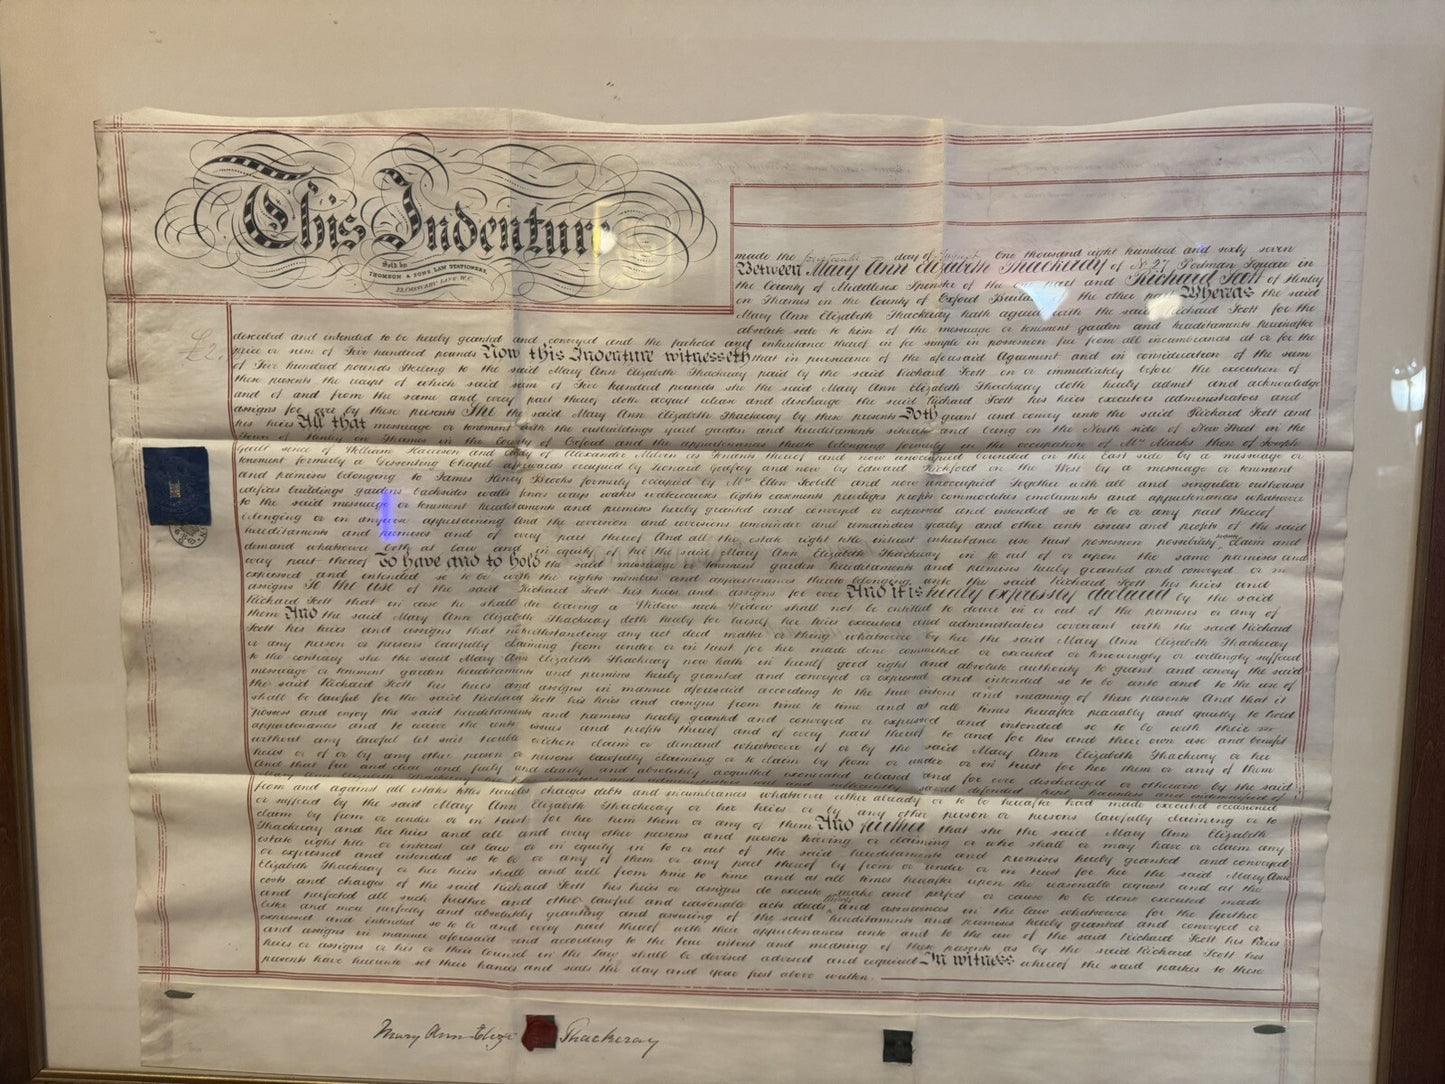 This Indenture
Sold by
THOMSON & SONS LAW STATIONERS,
made the day of August One thousand eight hundred and sixty seven
Between Mary Ann Elizabeth Thackeray of No 27 Portman Square in
the County of Middlesex Spinster of the one part and Richard Scott of Henley
on Thames in the County of Oxford Builder of the other part Whereas the said
Mary Ann Elizabeth Thackeray hath agreed with the said Richard Scott for the
absolute sale to him of the messuage or tenement garden and hereditaments hereinafter
£2.
described and intended to be hereby granted and conveyed and the freehold and inheritance thereof in fee simple in possession free from all incumbrances at or for the
price or sum of Five hundred pounds Now this Indenture witnesseth that in pursuance of the aforesaid Agreement and in consideration of the sum
of Five hundred pounds Sterling to the said Mary Ann Elizabeth Thackeray paid by the said Richard Scott on or immediately before the execution of
these presents the receipt of which said sum of Five hundred pounds she the said Mary Ann Elizabeth Thackeray doth hereby admit and acknowledge
and of and from the same and every part thereof doth acquit release and discharge the said Richard Scott his heirs executors administrators and
assigns for ever by these presents She the said Mary Ann Elizabeth Thackeray by these presents Doth grant and convey unto the said Richard Scott and
his heirs All that messuage or tenement with the outbuildings yard garden and hereditaments situate and being on the North side of New Street in the
Town of Henley on Thames in the County of Oxford and the appurtenances thereto belonging formerly in the occupation of Mrs Marks then of Joseph
since of William Harrison and of Alexander Melvin as Tenants thereof and now unoccupied bounded on the East side by a messuage or
tenement formerly a Dissenting Chapel afterwards occupied by Leonard Godfrey and now by Edward on the West by a messuage or tenement
and premises belonging to James Henry Brooks formerly occupied by Mrs Ellen and now unoccupied Together with all and singular outhouses
edifices buildings gardens backsides walls fences ways wakes watercourses lights easements privileges profits commodities emoluments and appurtenances whatsoever
to the said messuage or tenement hereditaments and premises hereby granted and conveyed or expressed and intended so to be or any part thereof
belonging or in anywise appertaining And the reversion and reversions remainder and remainders yearly and other rents issues and profits of the said
hereditaments and premises and of every part thereof And all the estate right title interest inheritance use trust possession possibility property claim and
demand whatsoever both at law and in equity of her the said Mary Ann Elizabeth Thackeray in to out of or upon the same premises and
every part thereof To have and to hold the said messuage or tenement garden hereditaments and premises hereby granted and conveyed or
expressed and intended so to be with the rights members and appurtenances thereto belonging unto the said Richard Scott his heirs and
assigns To the use of the said Richard Scott his heirs and assigns for ever And it is hereby expressly declared by the said
Richard Scott that in case he shall die leaving a Widow such Widow shall not be entitled to dower in or out of the premises or any of
them And the said Mary Ann Elizabeth Thackeray doth hereby for herself her heirs executors and administrators covenant with the said Richard
Scott his heirs and assigns that notwithstanding any act deed matter or thing whatsoever by her the said Mary Ann Elizabeth Thackeray
or any person or persons lawfully claiming from under or in trust for her made done committed or executed or knowingly or willingly suffered
to the contrary she the said Mary Ann Elizabeth Thackeray now hath in herself good right and absolute authority to grant and convey the said
messuage or tenement garden hereditaments and premises hereby granted and conveyed or expressed and intended so to be unto and to the use of
the said Richard Scott his heirs and assigns in manner aforesaid according to the true intent and meaning of these presents And that it
shall be lawful for the said Richard Scott his heirs and assigns from time to time and at all times hereafter peaceably and quietly to hold
possess and enjoy the said hereditaments and premises hereby granted and conveyed or expressed and intended so to be with their
appurtenances and to receive the rents issues and profits thereof and of every part thereof to and for his and their own use and benefit
without any lawful let suit trouble eviction claim or demand whatsoever of or by the said Mary Ann Elizabeth Thackeray or her
heirs or of or by any other person or persons lawfully claiming or to claim by from or under or in trust for her them or any of them
And that free and clear and freely and clearly and absolutely acquitted exonerated released and for ever discharged or otherwise by the said
Mary Ann Elizabeth Thackeray administrators well and sufficiently saved defended kept harmless and indemnified of
from and against all estates titles troubles charges debts and incumbrances whatsoever either already or to be hereafter had made executed occasioned
or suffered by the said Mary Ann Elizabeth Thackeray or her heirs or by any other person or persons lawfully claiming or to
claim by from or under or in trust for her them or any of them And further that she the said Mary Ann Elizabeth
Thackeray and her heirs and all and every other persons and person having or claiming or who shall or may have or claim any
estate right title or interest at law or in equity in to or out of the said hereditaments and premises hereby granted and conveyed
or expressed and intended so to be or any of them or any part thereof by from or under or in trust for her the said Mary Ann
Elizabeth Thackeray or her heirs shall and will from time to time and at all times hereafter upon the reasonable request and at the
costs and charges of the said Richard Scott his heirs or assigns do execute make and perfect or cause to be done executed made
and perfected all such further and other lawful and reasonable acts deeds things and assurances in the law whatsoever for the further
better and more perfectly and absolutely granting and assuring of the said hereditaments and premises hereby granted and conveyed or
expressed and intended so to be and every part thereof with their appurtenances unto and to the use of the said Richard Scott his heirs
and assigns in manner aforesaid and according to the true intent and meaning of these presents as by the said Richard Scott his
heirs or assigns or his or their Counsel in the Law shall be devised advised and required In witness whereof the said parties to these
presents have hereunto set their hands and seals the day and year first above written.
Mary Ann Eliz. Thackeray